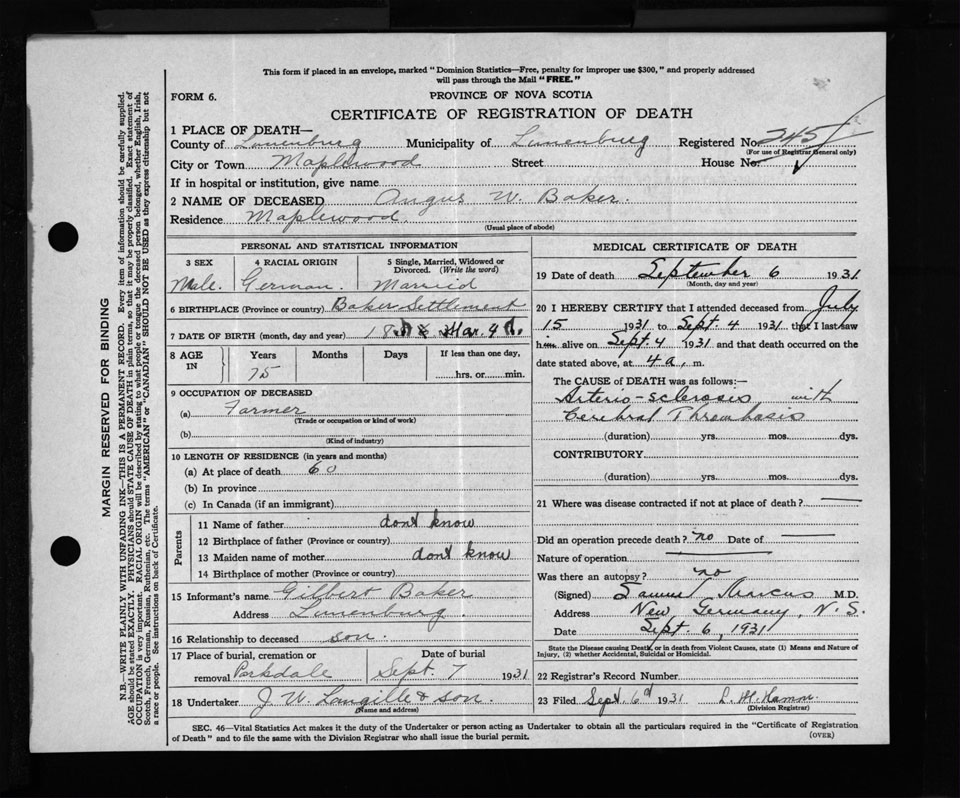 This form if placed in an envelope, marked "Dominion Statistics—Free, penalty for improper use $300," and properly addressed
will pass through the Mail "FREE."
FORM 6.
PROVINCE OF NOVA SCOTIA
CERTIFICATE OF REGISTRATION OF DEATH
1 PLACE OF DEATH—
County of Lunenburg Municipality of Lunenburg Registered No. 245
(For use of Registrar General only)
City or Town Maplewood Street House No.
If in hospital or institution, give name
2 NAME OF DECEASED Angus W. Baker.
Residence Maplewood
(Usual place of abode)
PERSONAL AND STATISTICAL INFORMATION
3 SEX 4 RACIAL ORIGIN 5 Single, Married, Widowed or
Divorced. (Write the word)
Male. German. Married
6 BIRTHPLACE (Province or country) Baker Settlement
7 DATE OF BIRTH (month, day and year)
8 AGE IN Years Months Days If less than one day,
75 hrs. or min.
9 OCCUPATION OF DECEASED
(a) Farmer
(Trade or occupation or kind of work)
(b)
(Kind of industry)
10 LENGTH OF RESIDENCE (in years and months)
(a) At place of death 60
(b) In province
(c) In Canada (if an immigrant)
Parents
11 Name of father dont know
12 Birthplace of father (Province or country)
13 Maiden name of mother dont know
14 Birthplace of mother (Province or country)
15 Informant's name Gilbert Baker
Address Lunenburg
16 Relationship to deceased son.
17 Place of burial, cremation or Date of burial
removal Parkdale Sept. 7 1931
18 Undertaker J. W. Langille & son.
(Name and address)
MEDICAL CERTIFICATE OF DEATH
19 Date of death September 6 1931
(Month, day and year)
20 I HEREBY CERTIFY that I attended deceased from July
15 1931 to Sept. 4 1931 that I last saw
him alive on Sept. 4 1931 and that death occurred on the
date stated above, at 4 a. m.
The CAUSE of DEATH was as follows:—
Arterio-sclerosis with
Cerebral Thrombosis
(duration) yrs. mos. dys.
CONTRIBUTORY
(duration) yrs. mos. dys.
21 Where was disease contracted if not at place of death?
Did an operation precede death? no Date of
Nature of operation
Was there an autopsy? no
(Signed) Samuel Marcus M.D.
Address New Germany, N. S.
Date Sept. 6, 1931
State the Disease causing Death, or in death from Violent Causes, state (1) Means and Nature of
Injury, (2) whether Accidental, Suicidal or Homicidal.
22 Registrar's Record Number
23 Filed Sept. 6 1931
(Division Registrar)
SEC. 46—Vital Statistics Act makes it the duty of the Undertaker or person acting as Undertaker to obtain all the particulars required in the "Certificate of Registration
of Death" and to file the same with the Division Registrar who shall issue the burial permit.
(OVER)
MARGIN RESERVED FOR BINDING
N.B.—WRITE PLAINLY WITH UNFADING INK—THIS IS A PERMANENT RECORD. Every item of information should be carefully supplied.
AGE should be stated EXACTLY. PHYSICIANS should STATE CAUSE OF DEATH in plain terms, so that it may be properly classified. Exact statement of
OCCUPATION is very important. RACIAL ORIGIN will be described by stating to what people or tongue the deceased person belonged, whether English, Irish,
Scotch, French, German, Russian, Ruthenian, etc. The terms "AMERICAN" or "CANADIAN" SHOULD NOT BE USED as they express citizenship but not
a race or people. See instructions on back of Certificate.